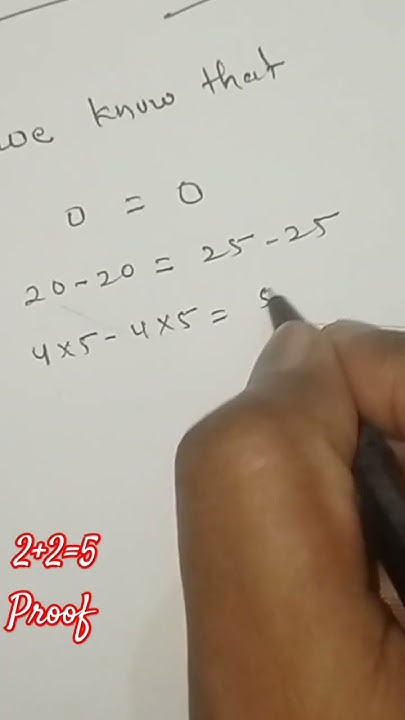 we know that
0 = 0
20-20 = 25-25
4x5-4x5 = 5
2+2=5
Proof